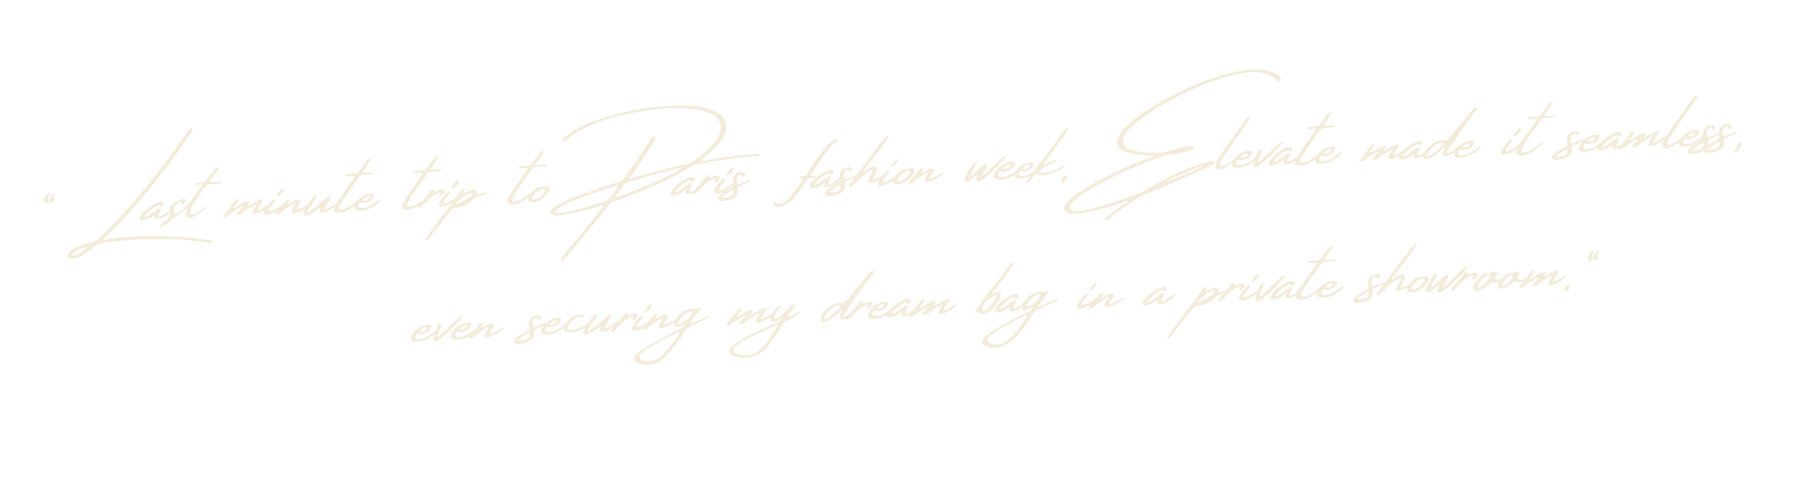 “ Last minute trip to Paris fashion week. Elevate made it seamless,
even securing my dream bag in a private showroom.“